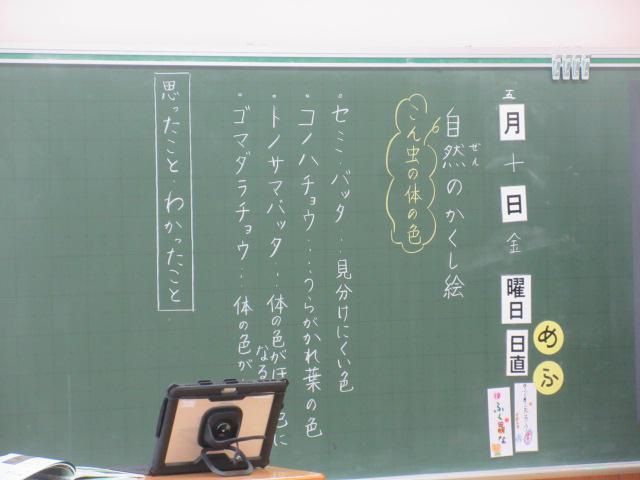 五月十日金曜日
日直
めふ
自然のかくし絵
ぜん
こん虫の体の色
・セミ・バッタ…見分けにくい色
・コノハチョウ……うらがかれ葉の色
・トノサマバッタ…体の色がほ 色に
なる
・ゴマダラチョウ…体の色が
思ったこと・わかったこと